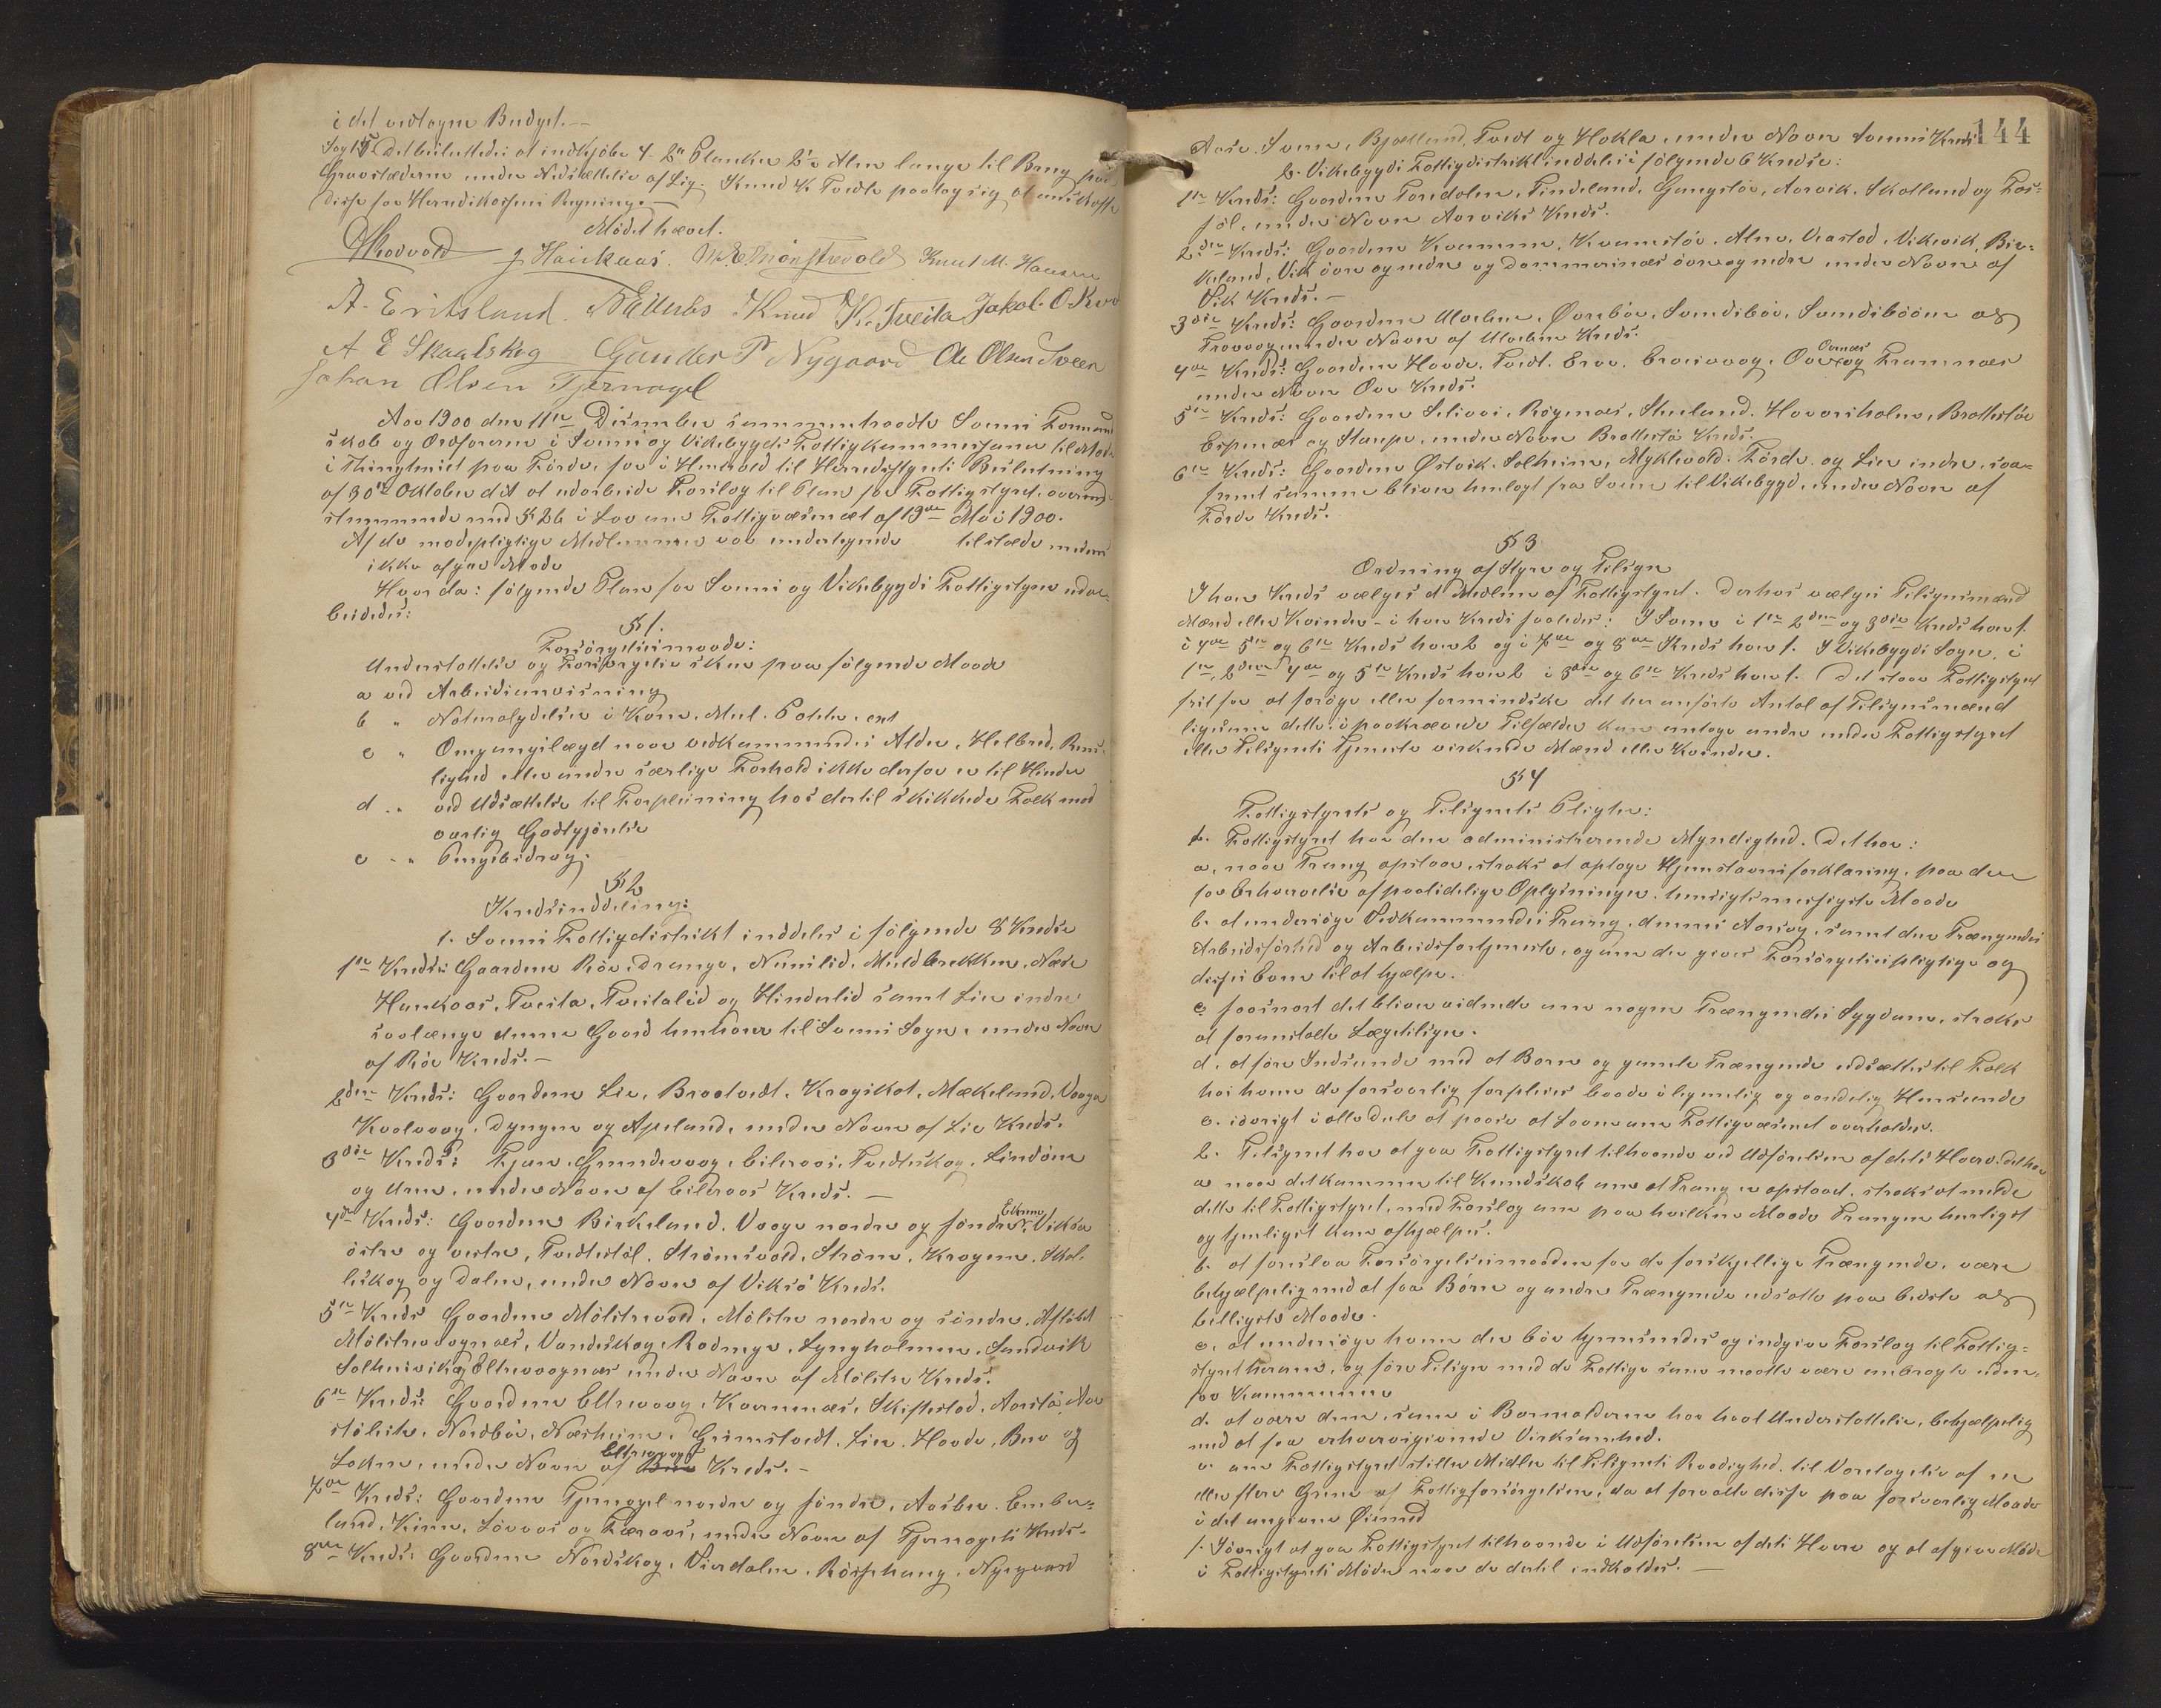 i det vedtagne Budget.—
Sag 15. Det besluttedes at indkjøbe 4 - 2" Planker 2½ Alen lange til Brug paa
Gravstæderne under Nedsættelse af Lig. Knud K. Tveita paatog sig at anskaffe
disse for Herredskassens Regning.—
Mødet hævet.
J. Haukaas. Knut M. Hansen
A. Eritsland. Knud K. Tveita Jakob O.
A E Skaalskog Gunder P Nygaard Ole Olsen Sveen
Johan Olsen Tjernagel
Aar 1900 den 11te December sammentraadte Sveens Formand-
skab og Ordførerne i Sveens og Vikebygds Fattigkommissioner til Møde
i Thingstuen paa Førde, for i Henhold til Herredsstyrets Beslutning
af 30te Oktober d.A. at udarbeide Forslag til Plan for Fattigstyret overens-
stemmende med § 26 i Lov om Fattigvæsenet af 19de Mai 1900.
Af de mødepligtige Medlemmer var undertegnede tilstæde medens
ikke afgav Møde
Hvorda: følgende Plan for Sveens og Vikebygds Fattigstyre udar-
beidedes:
§ 1.
Forsørgelsesmaade:
Understøttelse og Forsørgelse sker paa følgende Maade
a ved Arbeidsanvisning
b " Naturalydelser i Korn, Mel, Poteter, ect
c " Omgangslægd naar vedkommendes Alder, Helbred, Ren-
lighed eller andre særlige Forhold ikke derfor er til Hinder
d " ved Udsættelse til Forpleining hos dertil skikkede Folk mod
aarlig Godtgjørelse
e " Pengebidrag.
§ 2
Kredsinddeling:
1. Sveens Fattigdistrikt inddeles i følgende 8 Kredse
1te Kreds: Gaardene Røe, Drange, Nernslid, Muldbrekken, Næse
Haukaas, Tveita, Tveitalid og Hinderlid samt Lie indre
saalænge denne Gaard henhører til Sveens Sogn, under Navn
af Røe Kreds.—
2den Kreds: Gaardene Lie, Braatvedt, Kragskot, Mækeland, Vaaga
Kvalvaag, Dyngen og Apeland, under Navn af Lie Kreds.
3die Kreds: Tjern, Grundevaag, Eileraas, Tvedteskog, Lindøen
og Uren, under Navn af Eileraas Kreds.—
4de Kreds: Gaardene Birkeland, Vaage nordre og søndre, Ekren, Viksø
østre og vestre, Tvedtestøl, Strømsvold, Strøm, Kragen,
leskog og Dalen, under Navn af Viksø Kreds.
5te Kreds Gaardene Mølstrevold, Mølstre nordre og søndre, Afløbet
Mølstrevaagnæs, Vandeskog, Rødmyr, Lyngholmen, Sandvik
Solheimsvik og Eltrevaagnæs under Navn af Mølstre Kreds.
6te Kreds: Gaardene Eltrevaag, Kvernenæs, Skiftestad,
Nordbø, Næsheim, Grimstvedt, Lie, Hovda, Bue og
Lokne, under Navn af Bue Eltrevaags Kreds.—
7de Kreds: Gaardene Tjernagel nordre og søndre, Aasbø, Embe-
land, Kinn, Løvaas og Færaas, under Navn af Tjernagels Kreds.
8de Kreds: Gaardene Nordskog, Vierdalen, Røsshaug, Nygaard
144
Aase, Sveen, Bjælland, Tvedt og Hokla, under Navn Sveens Kreds
2. Vikebygds Fattigdistrikt inddeles i følgende 6 Kredse:
1te Kreds: Gaardene Tordalen, Tindeland, Gangstø, Aarvik, Skotland og Fos-
søl, under Navn Aarviks Kreds.
2den Kreds: Gaardene Kvamme, Kvamstø, Alne, Vaastad, Vikevik, Bir-
keland, Vik øvre og nedre og Dommersnæs øvre og nedre under Navn af
Vik Kreds.—
3die Kreds: Gaardene Ulveben, Øvrebø, Sundsbø, Sundsbøen og
Trovaag under Navn af Ulveben Kreds.
4de Kreds: Gaardene Hovda, Tvedt, Ervaag, Oa Oanæs og Framnæs
under Navn Oa Kreds.
5te Kreds: Gaardene Selvaas, Røgnæs, Skeieland, Havarsholm, Brattestø
Espenæs og Staupe, under Navn Brattestø Kreds.
6te Kreds: Gaardene Østvik, Solheim, Myklevold, Førde og Lie indre, saa-
fremt samme bliver henlagt fra Sveen til Vikebygd, under Navn af
Førde Kreds.
§ 3
Ordning af Styre og Tilsyn
I hver Kreds vælges et Medlem af Fattigstyret. Derhos vælges Tilsynsmænd
Mænd eller Kvinder - i hver Kreds saaledes: I Sveen i 1te 2den og 3die Kreds hver 1.
i 4de 5te og 6te Kreds hver 2 og i 7de og 8de Kreds hver 1. I Vikebygds Sogn, i
1te, 2den 4de og 5te Kreds hver 2 i 3die og 6te Kreds hver 1. Det staar Fattigstyret
frit for at forøge eller formindske det her anførte Antal af Tilsynsmænd
ligesom dette i paakrævede Tilfælder kan antage andre under Fattigstyret
eller Tilsynets Tjeneste virkende Mænd eller Kvinder.
§ 4
Fattigstyrets og Tilsynets Pligter:
1. Fattigstyret har den administrerende Myndighed. Det har:
a, naar Trang opstaar, straks at optage Hjemstavnsforklaring, paa den
for Erhvervelse af paalidelige Oplysninger hensigtsmæssigste Maade
b. at undersøge Vedkommendes Trang, dennes Aarsag, samt den Trængendes
Arbeidsførhed og Arbeidsfortjeneste, og om der gives Forsørgelsespligtige og
disses Evne til at hjælpe.
c saasnart det bliver vidende om nogen Trængendes Sygdom, straks
at foranstalte Lægetilsyn.
d. at føre Indseende med at Børn og gamle Trængende udsættes til Folk
hos hvem de forsvarlig forpleies baade i legemlig og aandelig Henseende
e. iøvrigt i alle Dele at paase at Loven om Fattigvæsenet overholdes.
2. Tilsynet har at gaa Fattigstyret tilhaande ved Udførelsen af dets Hverv. Det har
a naar det kommer til Kundskab om at Trang er opstaaet, straks at melde
dette til Fattigstyret, med Forslag om paa hvilken Maade Trangen hurtigst
og tjenligst kan afhjælpes.
b. at foreslaa Forsørgelsesmaaden for de forskjellige Trængende, være
behjælpelig med at faa Børn og andre Trængende udsatte paa bedste og
billigste Maade.
c. at undersøge hvem der bør hjemsendes og indgive Forslag til Fattig-
styret herom, og føre Tilsyn med de Fattige som maatte være anbragte uden-
for Kommunen
d. at være dem, som i Barnealderen har havt Understøttelse, behjælpelig
med at faa erhvervsgivende Virksomhed.
e. om Fattigstyret stiller Midler til Tilsynets Raadighed til Varetagelse af en
eller flere Grene af Fattigforsørgelsen, da at forvalte disse paa forsvarlig Maade
i det angivne Øiemed
f. Iøvrigt at gaa Fattigstyret tilhaande i Udførelsen af dets Hverv og at afgive Møde
i Fattigstyrets Møder naar de dertil indkaldes.—